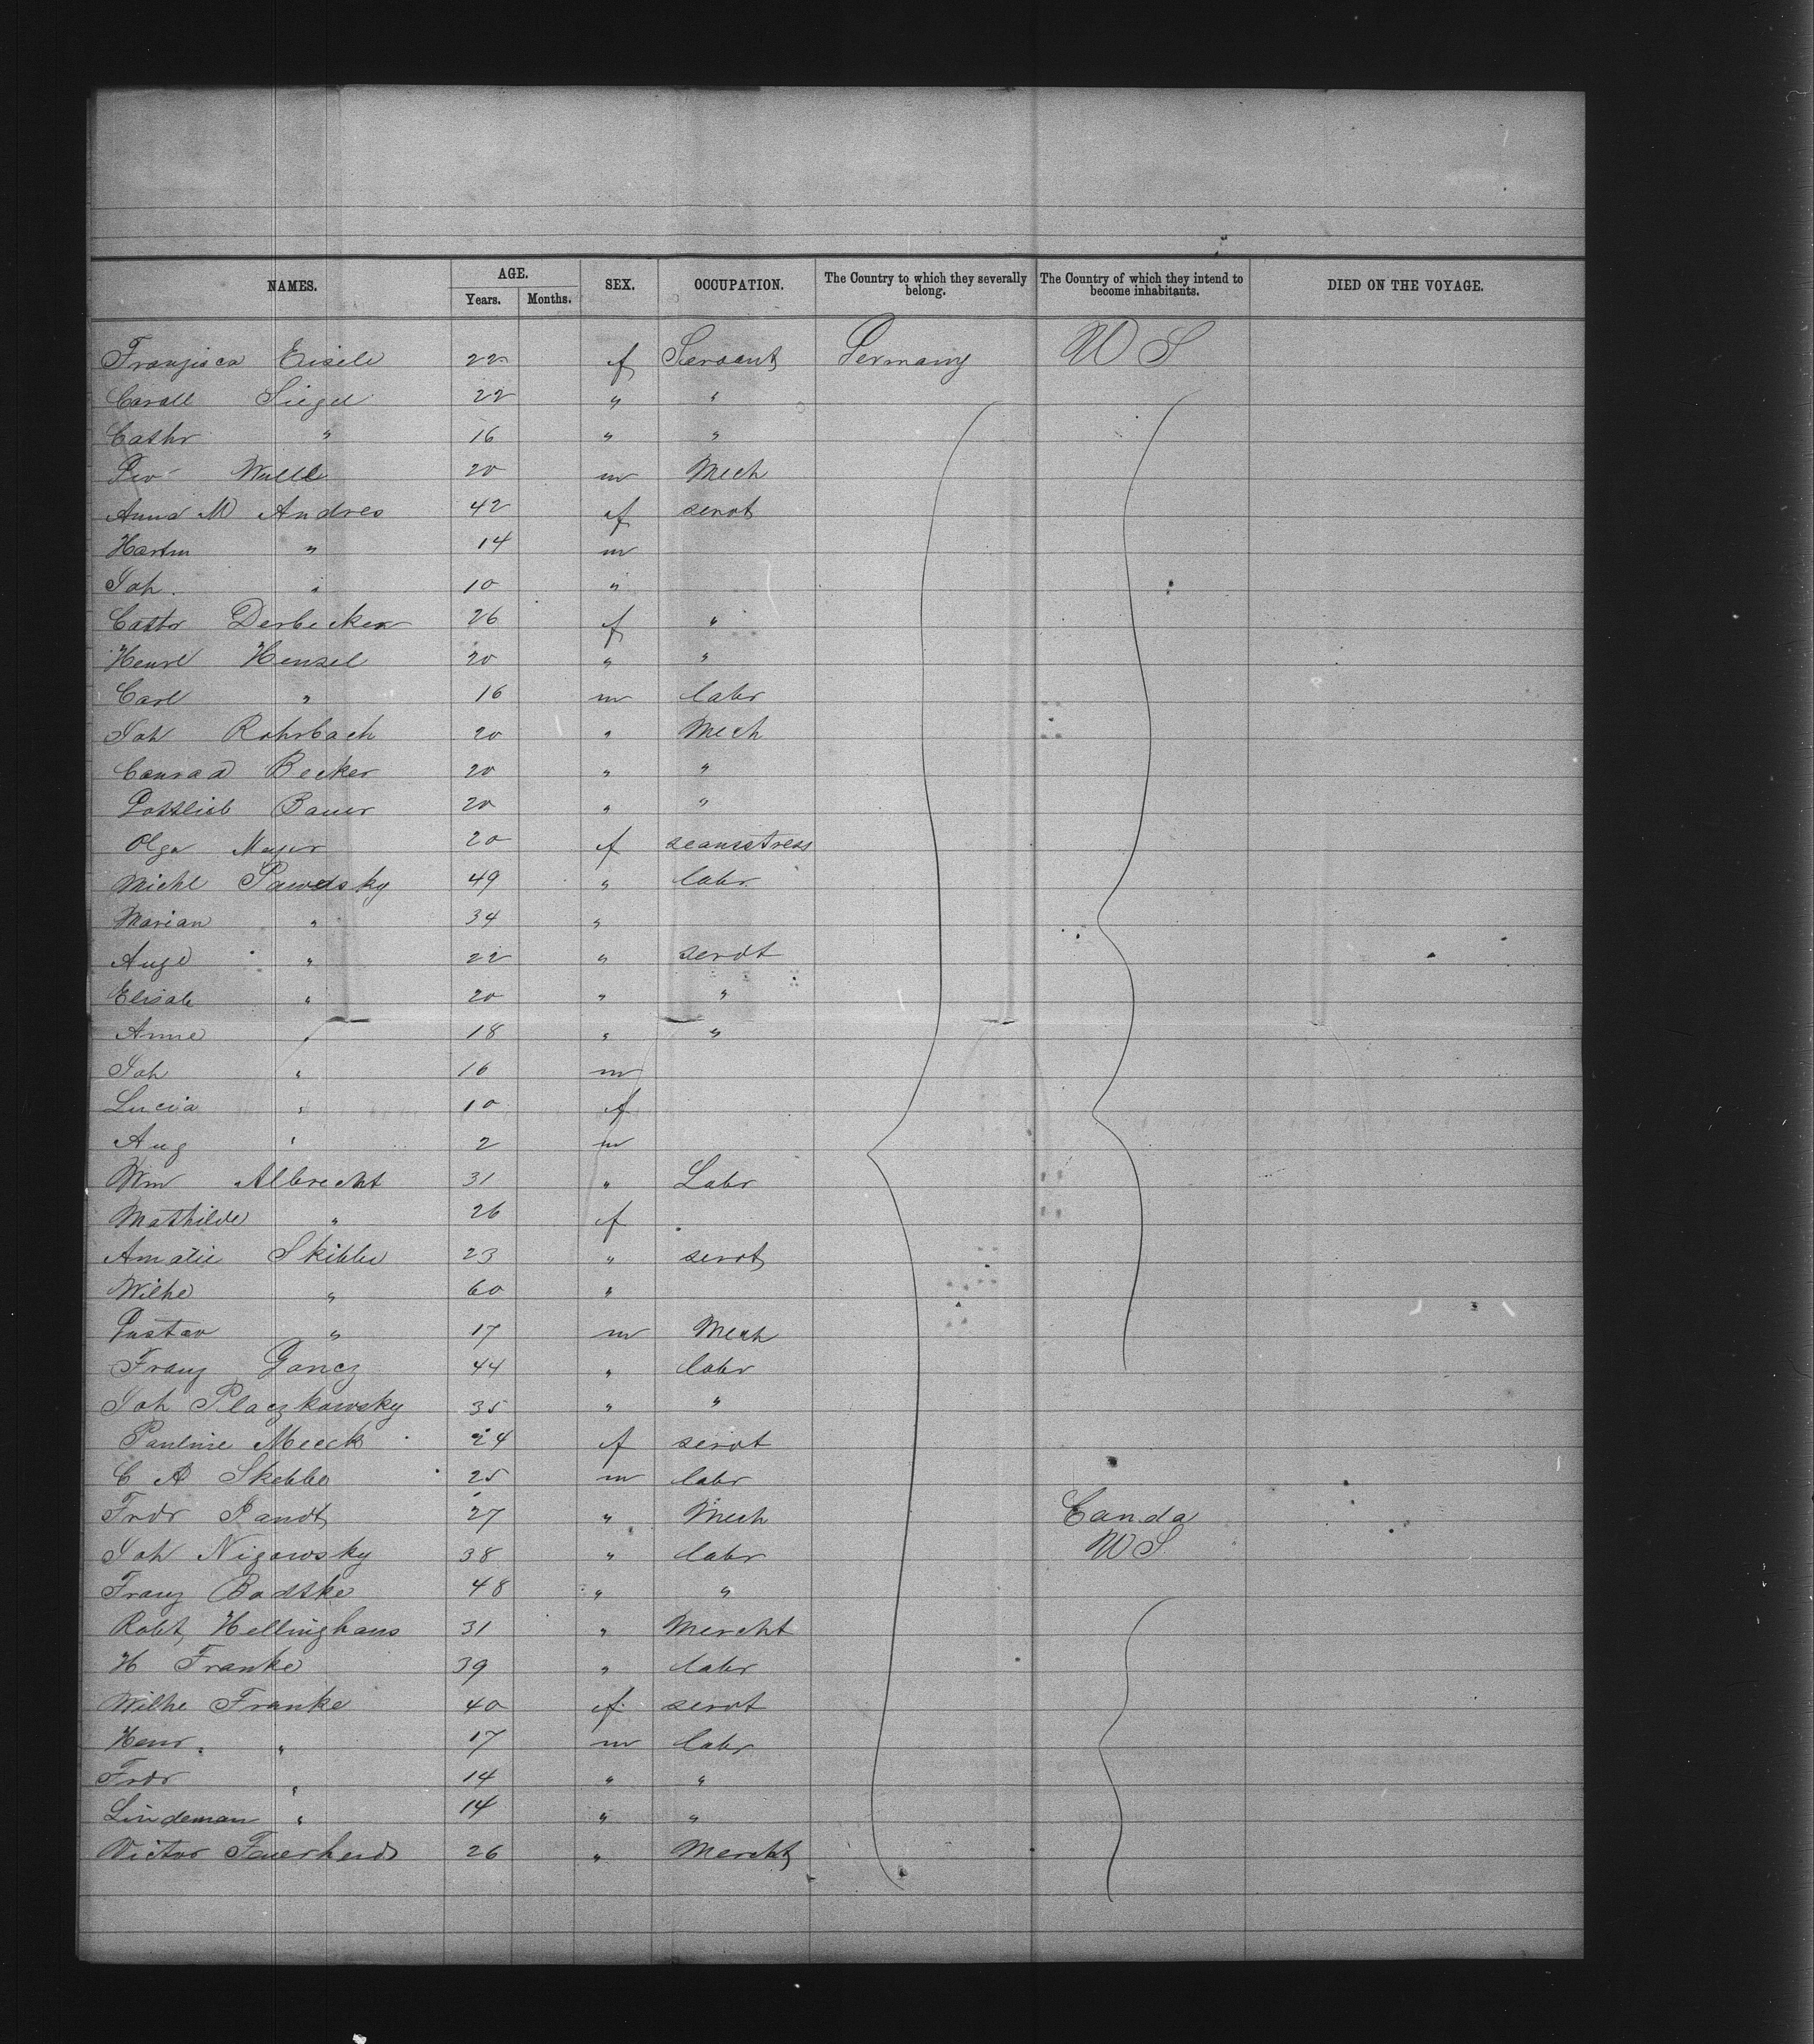 NAMES. AGE. SEX. OCCUPATION. The Country to which they severally belong. The Country of which they intend to become inhabitants. DIED ON THE VOYAGE.
Years. Months.
Franzisca Eisele 22 f Servant Germany U S
Caroll Siegel 22 " "
Cathr " 16 " "
20 m Mech
Anna M Andres 42 f servt
" 14 m
Joh. " 10 "
Derbecker 26 f "
Hensel 20 " "
Carl " 16 m labr
Joh Rohrbach 20 " Mech
Conrad Becker 20 " "
Gottlieb Bauer 20 " "
Olga Mayer 20 f seamstress
Michl Pawelsky 49 " labr
Marian " 34 "
Auge " 22 " servt
Elisab " 20 " "
Anne " 18 " "
Joh " 16 m
Lucia " 10 f
Aug " 2 m
Wm Albrecht 31 " Labr
Mathilde " 26 f
Amalie Skibbe 23 " servt
Wilhe " 60 "
Gustav " 17 m Mech
Franz Goncz 44 " labr
Joh Placzkowsky 35 " "
Pauline Meeck 24 f servt
C A Skebbe 25 m labr
Frdr Pandt 27 " Mech Canda
Joh Nigowsky 38 " labr U S
Franz Badtke 48 " "
Robt Hellinghaus 31 " Mercht
H Franke 39 " labr
Wilhe Franke 40 f servt
Henr. " 17 m labr
Frdr " 14 " "
Lindeman " 14 " "
Victor Feuerherd 26 " Mercht